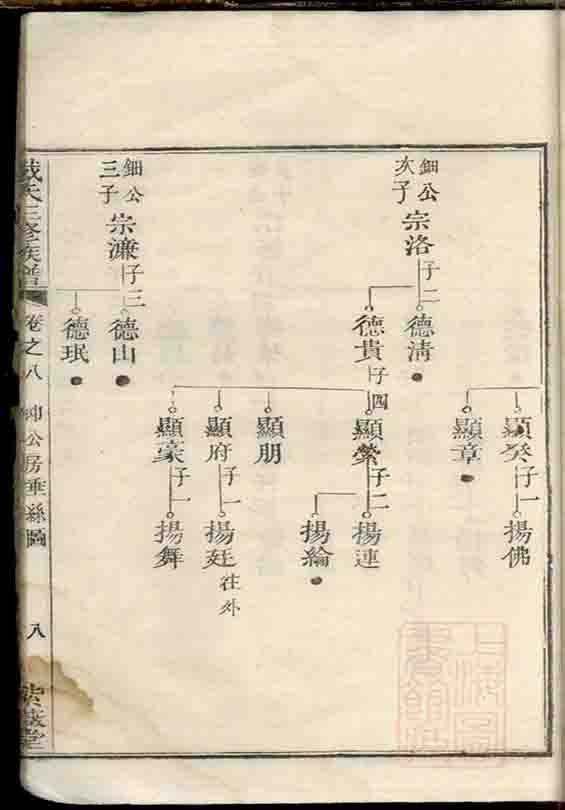 鈿公
次子
宗洛
子二
德清
德貴
子四
顯癸
子一
揚佛
顯章
顯縈
子二
揚連
揚綸
顯朋
顯府
子一
揚廷
往外
顯豪
子一
揚舞
鈿公
三子
宗濂
子三
德山
德珉
戴氏三修族譜
卷之八
公房垂絲圖
八
上海圖書館藏